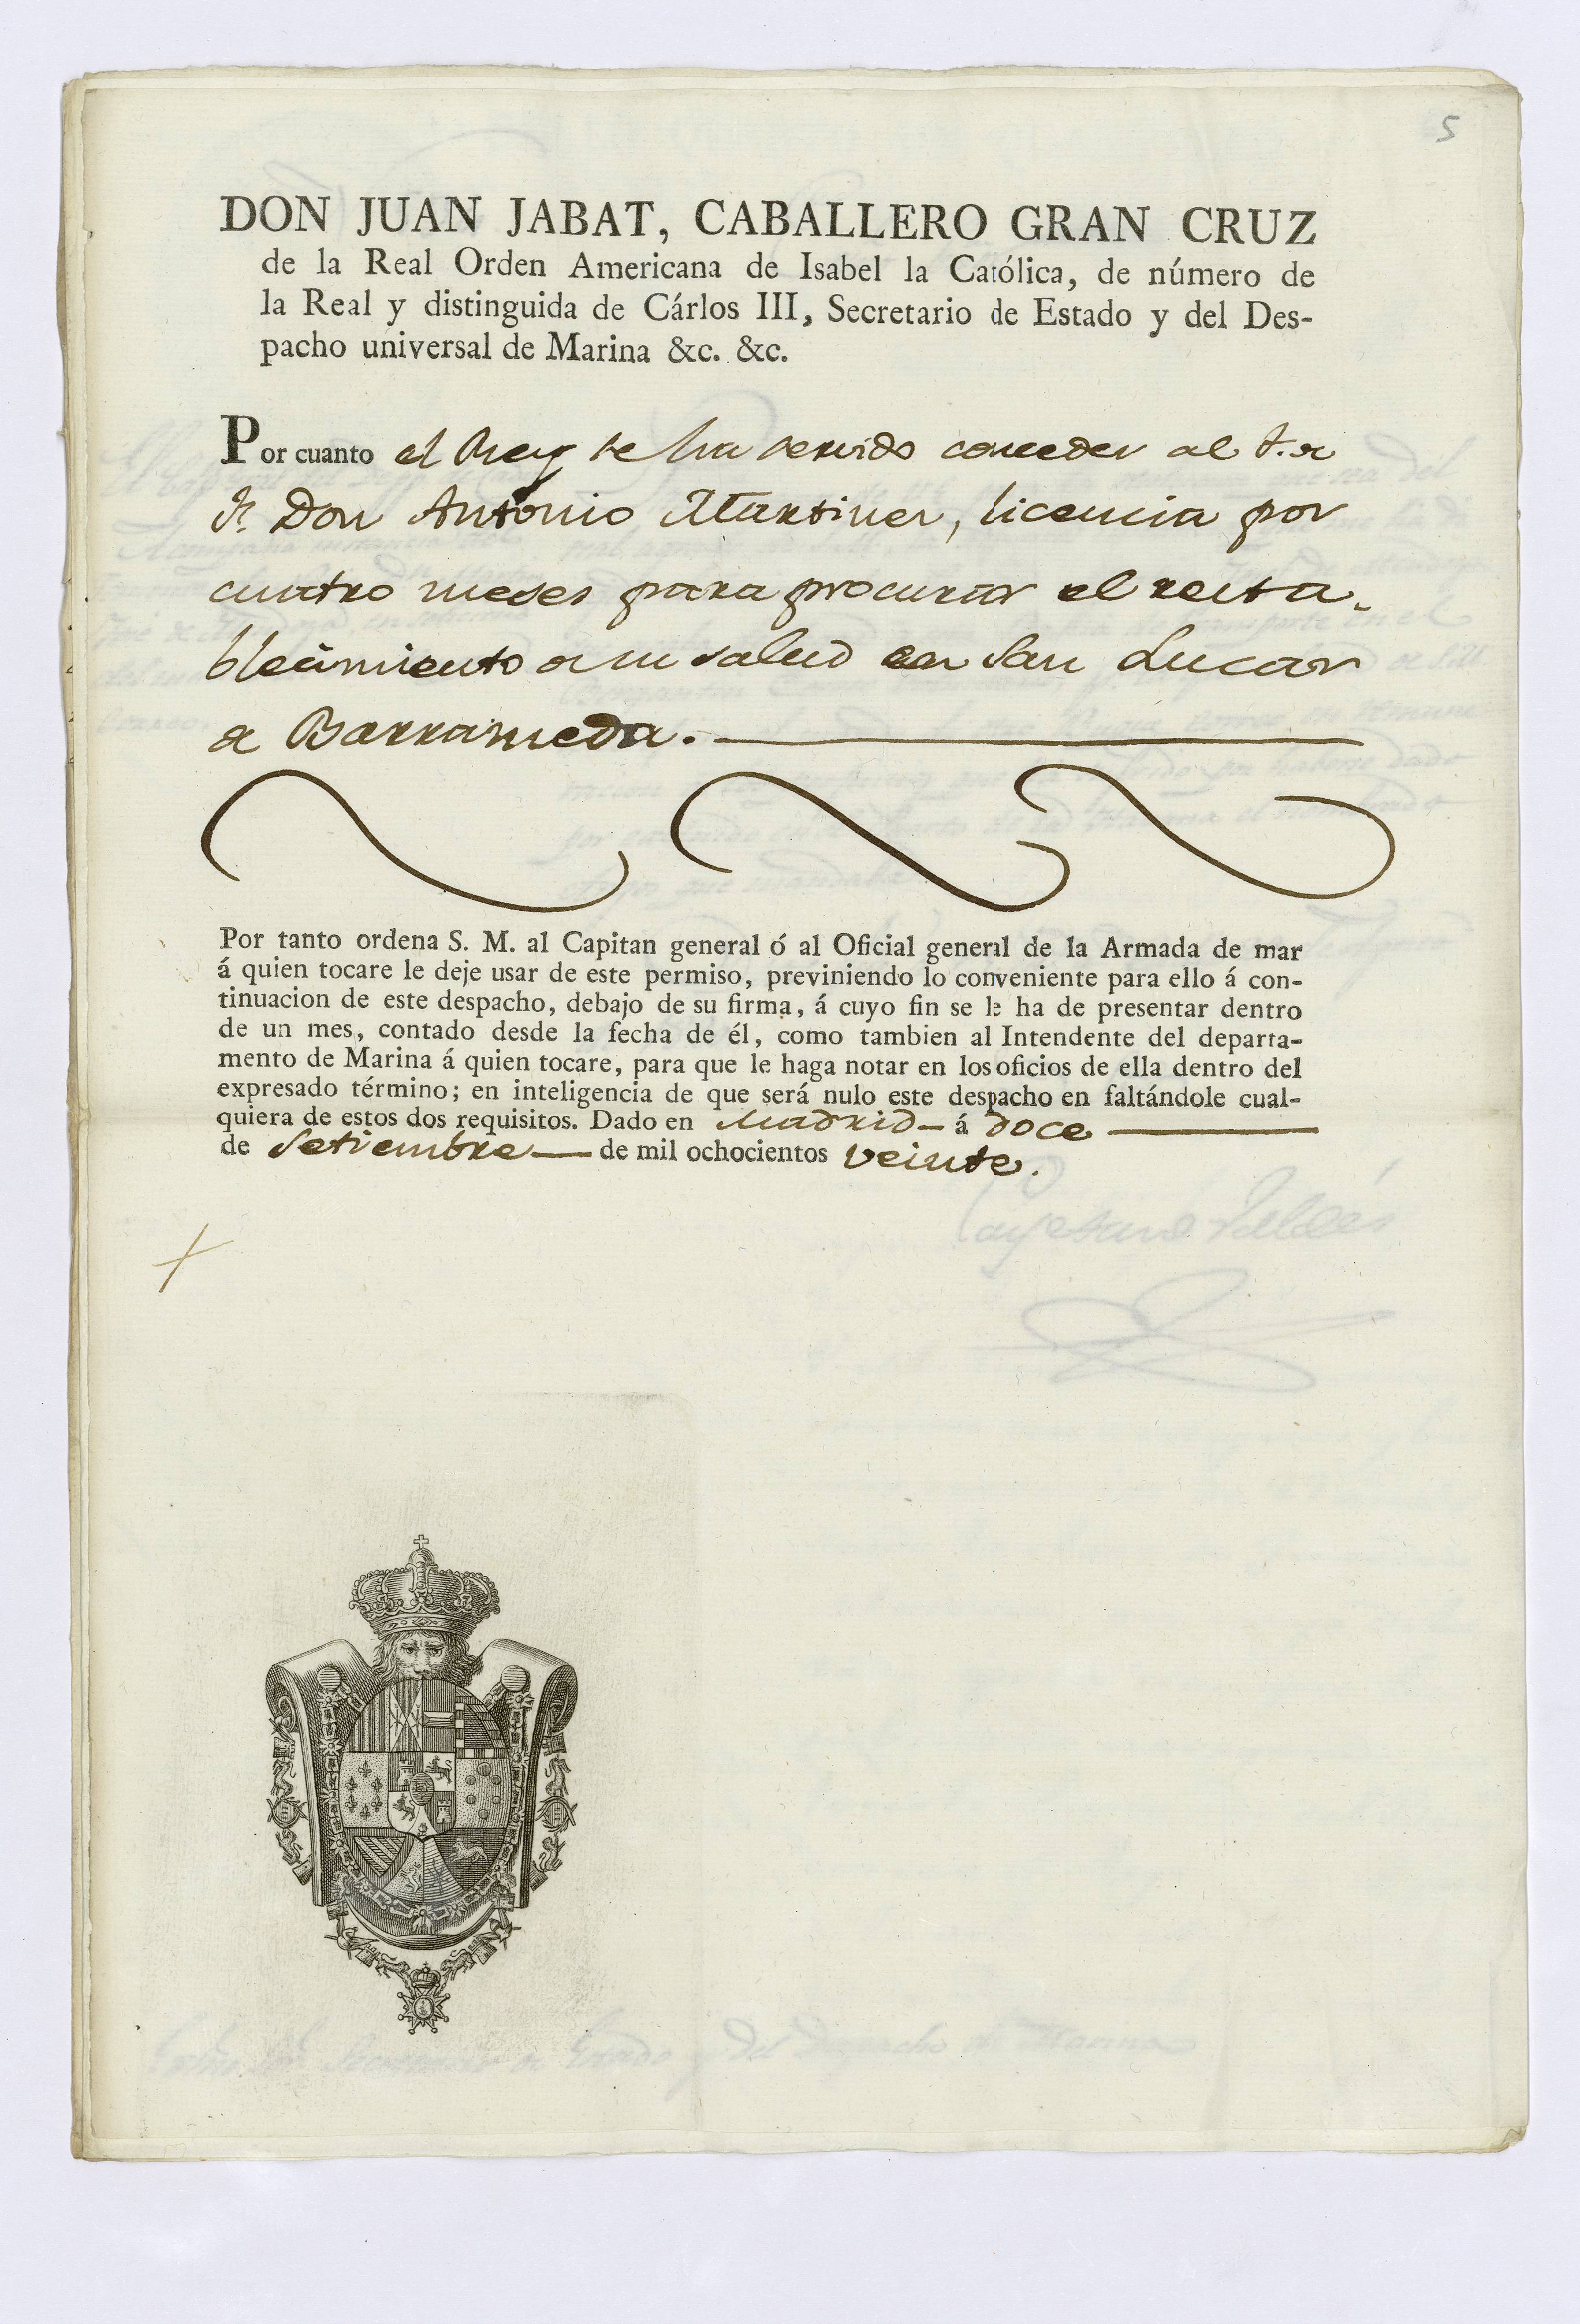 5
DON JUAN JABAT, CABALLERO GRAN CRUZ
de la Real Orden Americana de Isabel la Católica, de número de
la Real y distinguida de Cárlos III, Secretario de Estado y del Des-
pacho universal de Marina &c. &c.
Por cuanto el Rey se ha servido conceder al
Don Antonio Martinez, licencia por
cuatro meses para procurar el resta-
blecimiento a su salud en San Lucar
a Barrameda.
Por tanto ordena S. M. al Capitan general ó al Oficial general de la Armada de mar
á quien tocare le deje usar de este permiso, previniendo lo conveniente para ello á con-
tinuacion de este despacho, debajo de su firma, á cuyo fin se le ha de presentar dentro
de un mes, contado desde la fecha de él, como tambien al Intendente del departa-
mento de Marina á quien tocare, para que le haga notar en los oficios de ella dentro del
expresado término; en inteligencia de que será nulo este despacho en faltándole cual-
quiera de estos dos requisitos. Dado en Madrid á doce
de Setiembre de mil ochocientos veinte.
Cayetano Valdés